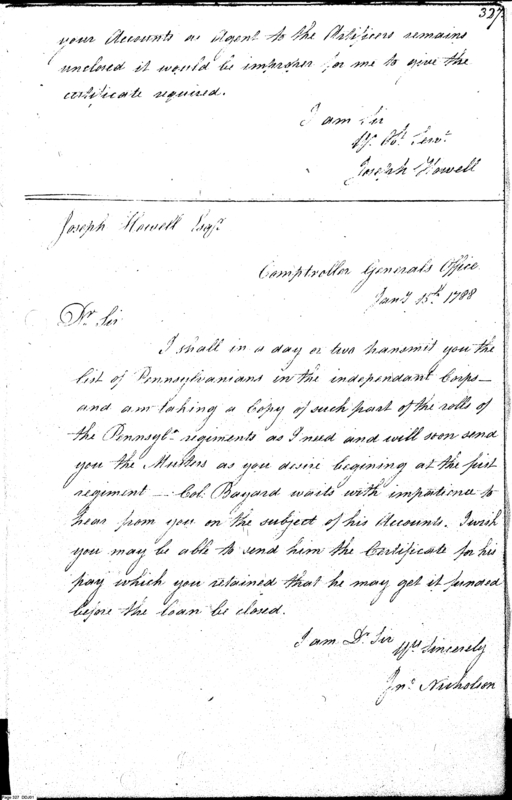 327.
your Accounts as Agent to the Artificers remains
unclosed it would be improper for me to give the
certificate required.
I am Sir
Yr. Obt. Servt.
Joseph Howell
Joseph Howell Esqr.
Comptroller Generals Office
Jany 15th. 1788
Dr. Sir
I shall in a day or two transmit you the
list of Pennsylvanians in the independant Corps—
and am taking a Copy of such part of the rolls of
the Pennsyla. regiments as I need and will soon send
you the Musters as you desire begining at the first
regiment — Col. Bayard waits with impatience to
hear from you on the subject of his Accounts. I wish
you may be able to send him the Certificate for his
pay which you retained that he may get it funded
before the loan be closed.
I am Dr. Sir
Yrs Sincerely
Jno. Nicholson
Page 327